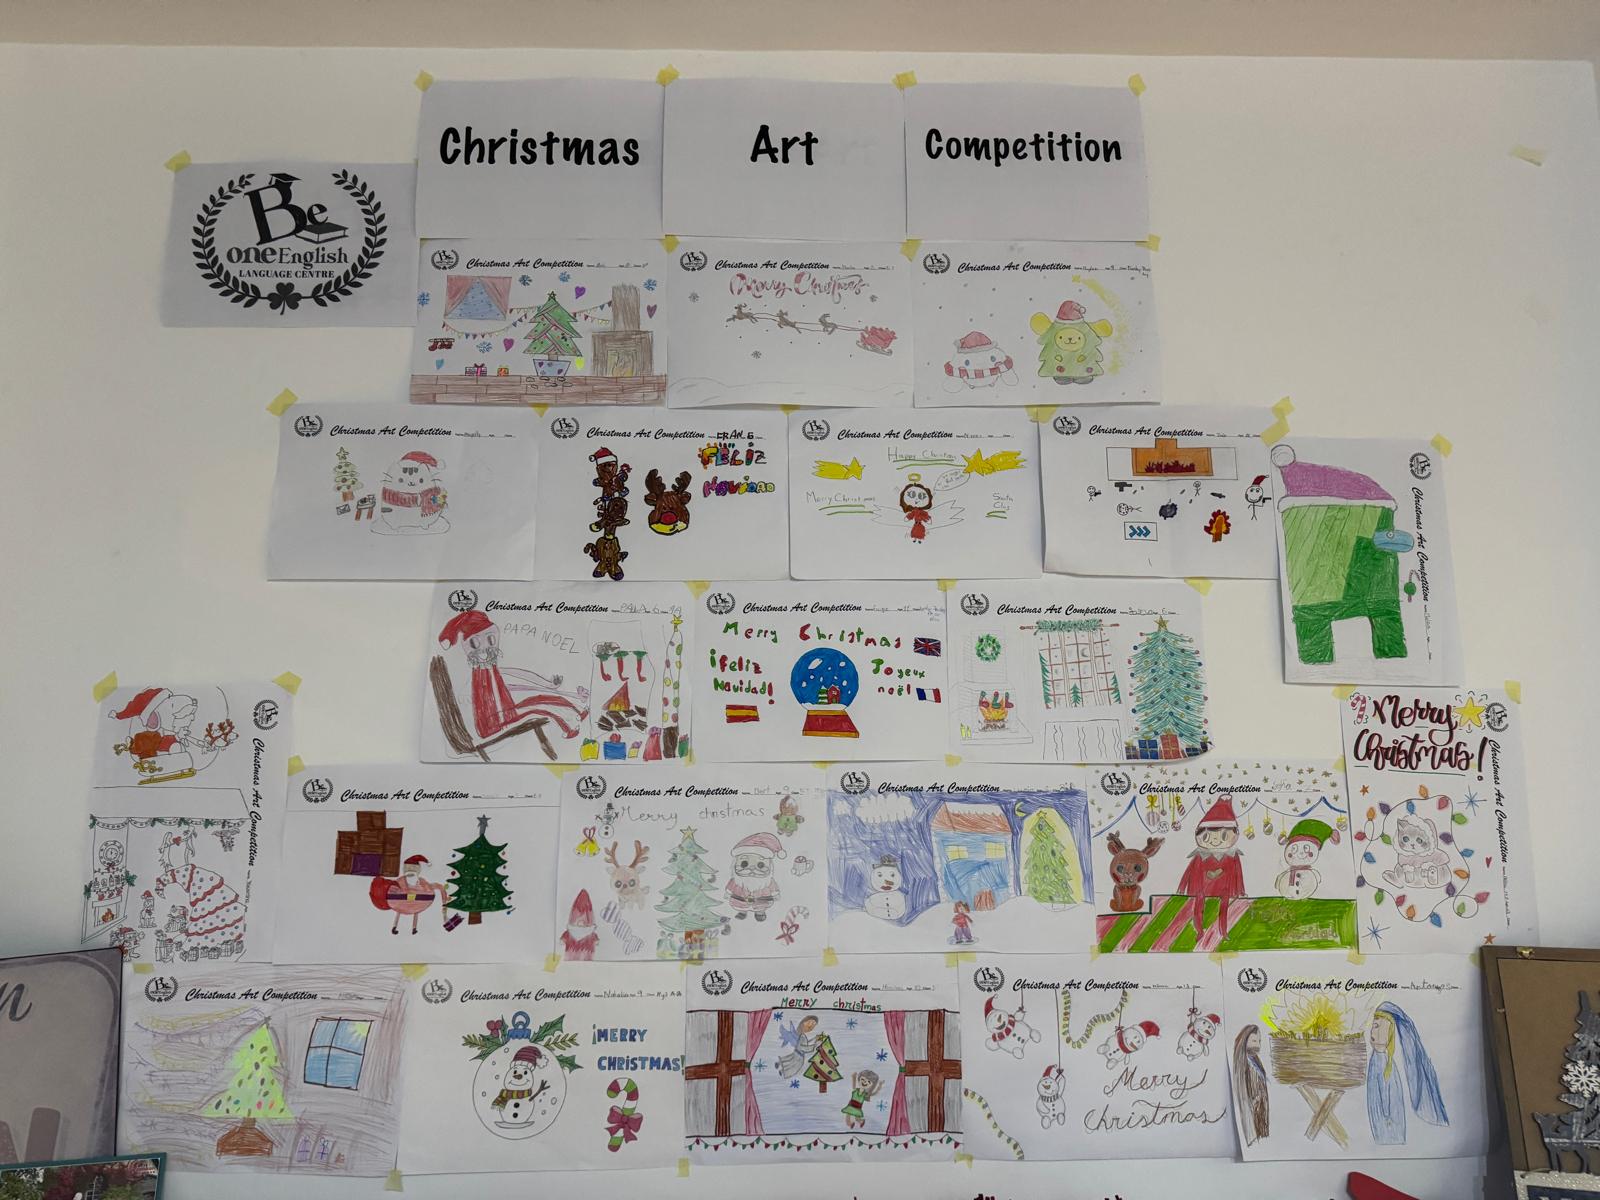 Christmas Art Competition
Be
oneEnglish
LANGUAGE CENTRE
Be
Christmas Art Competition
Be
Christmas Art Competition
Merry Christmas
Be
Christmas Art Competition
Be
Christmas Art Competition
Be
Christmas Art Competition FRAN. 6
FELIZ
NAVIDAD
Be
Christmas Art Competition
Happy Christmas
Merry Christmas
Santa
Be
Christmas Art Competition
Be
Christmas Art Competition
Be
Christmas Art Competition
PAPA NOEL
Be
Christmas Art Competition
Merry Christmas
¡Feliz
Navidad!
Joyeux
noël
Be
Christmas Art Competition
Be
Christmas Art Competition
Be
Christmas Art Competition
Be
Christmas Art Competition
Merry christmas
Be
Christmas Art Competition
Be
Christmas Art Competition
Be
Christmas Art Competition
Merry
Christmas!
Be
Christmas Art Competition
Be
Christmas Art Competition Natalia 9
¡MERRY
CHRISTMAS!
Be
Christmas Art Competition
Merry christmas
Be
Christmas Art Competition
Merry
Christmas
Be
Christmas Art Competition